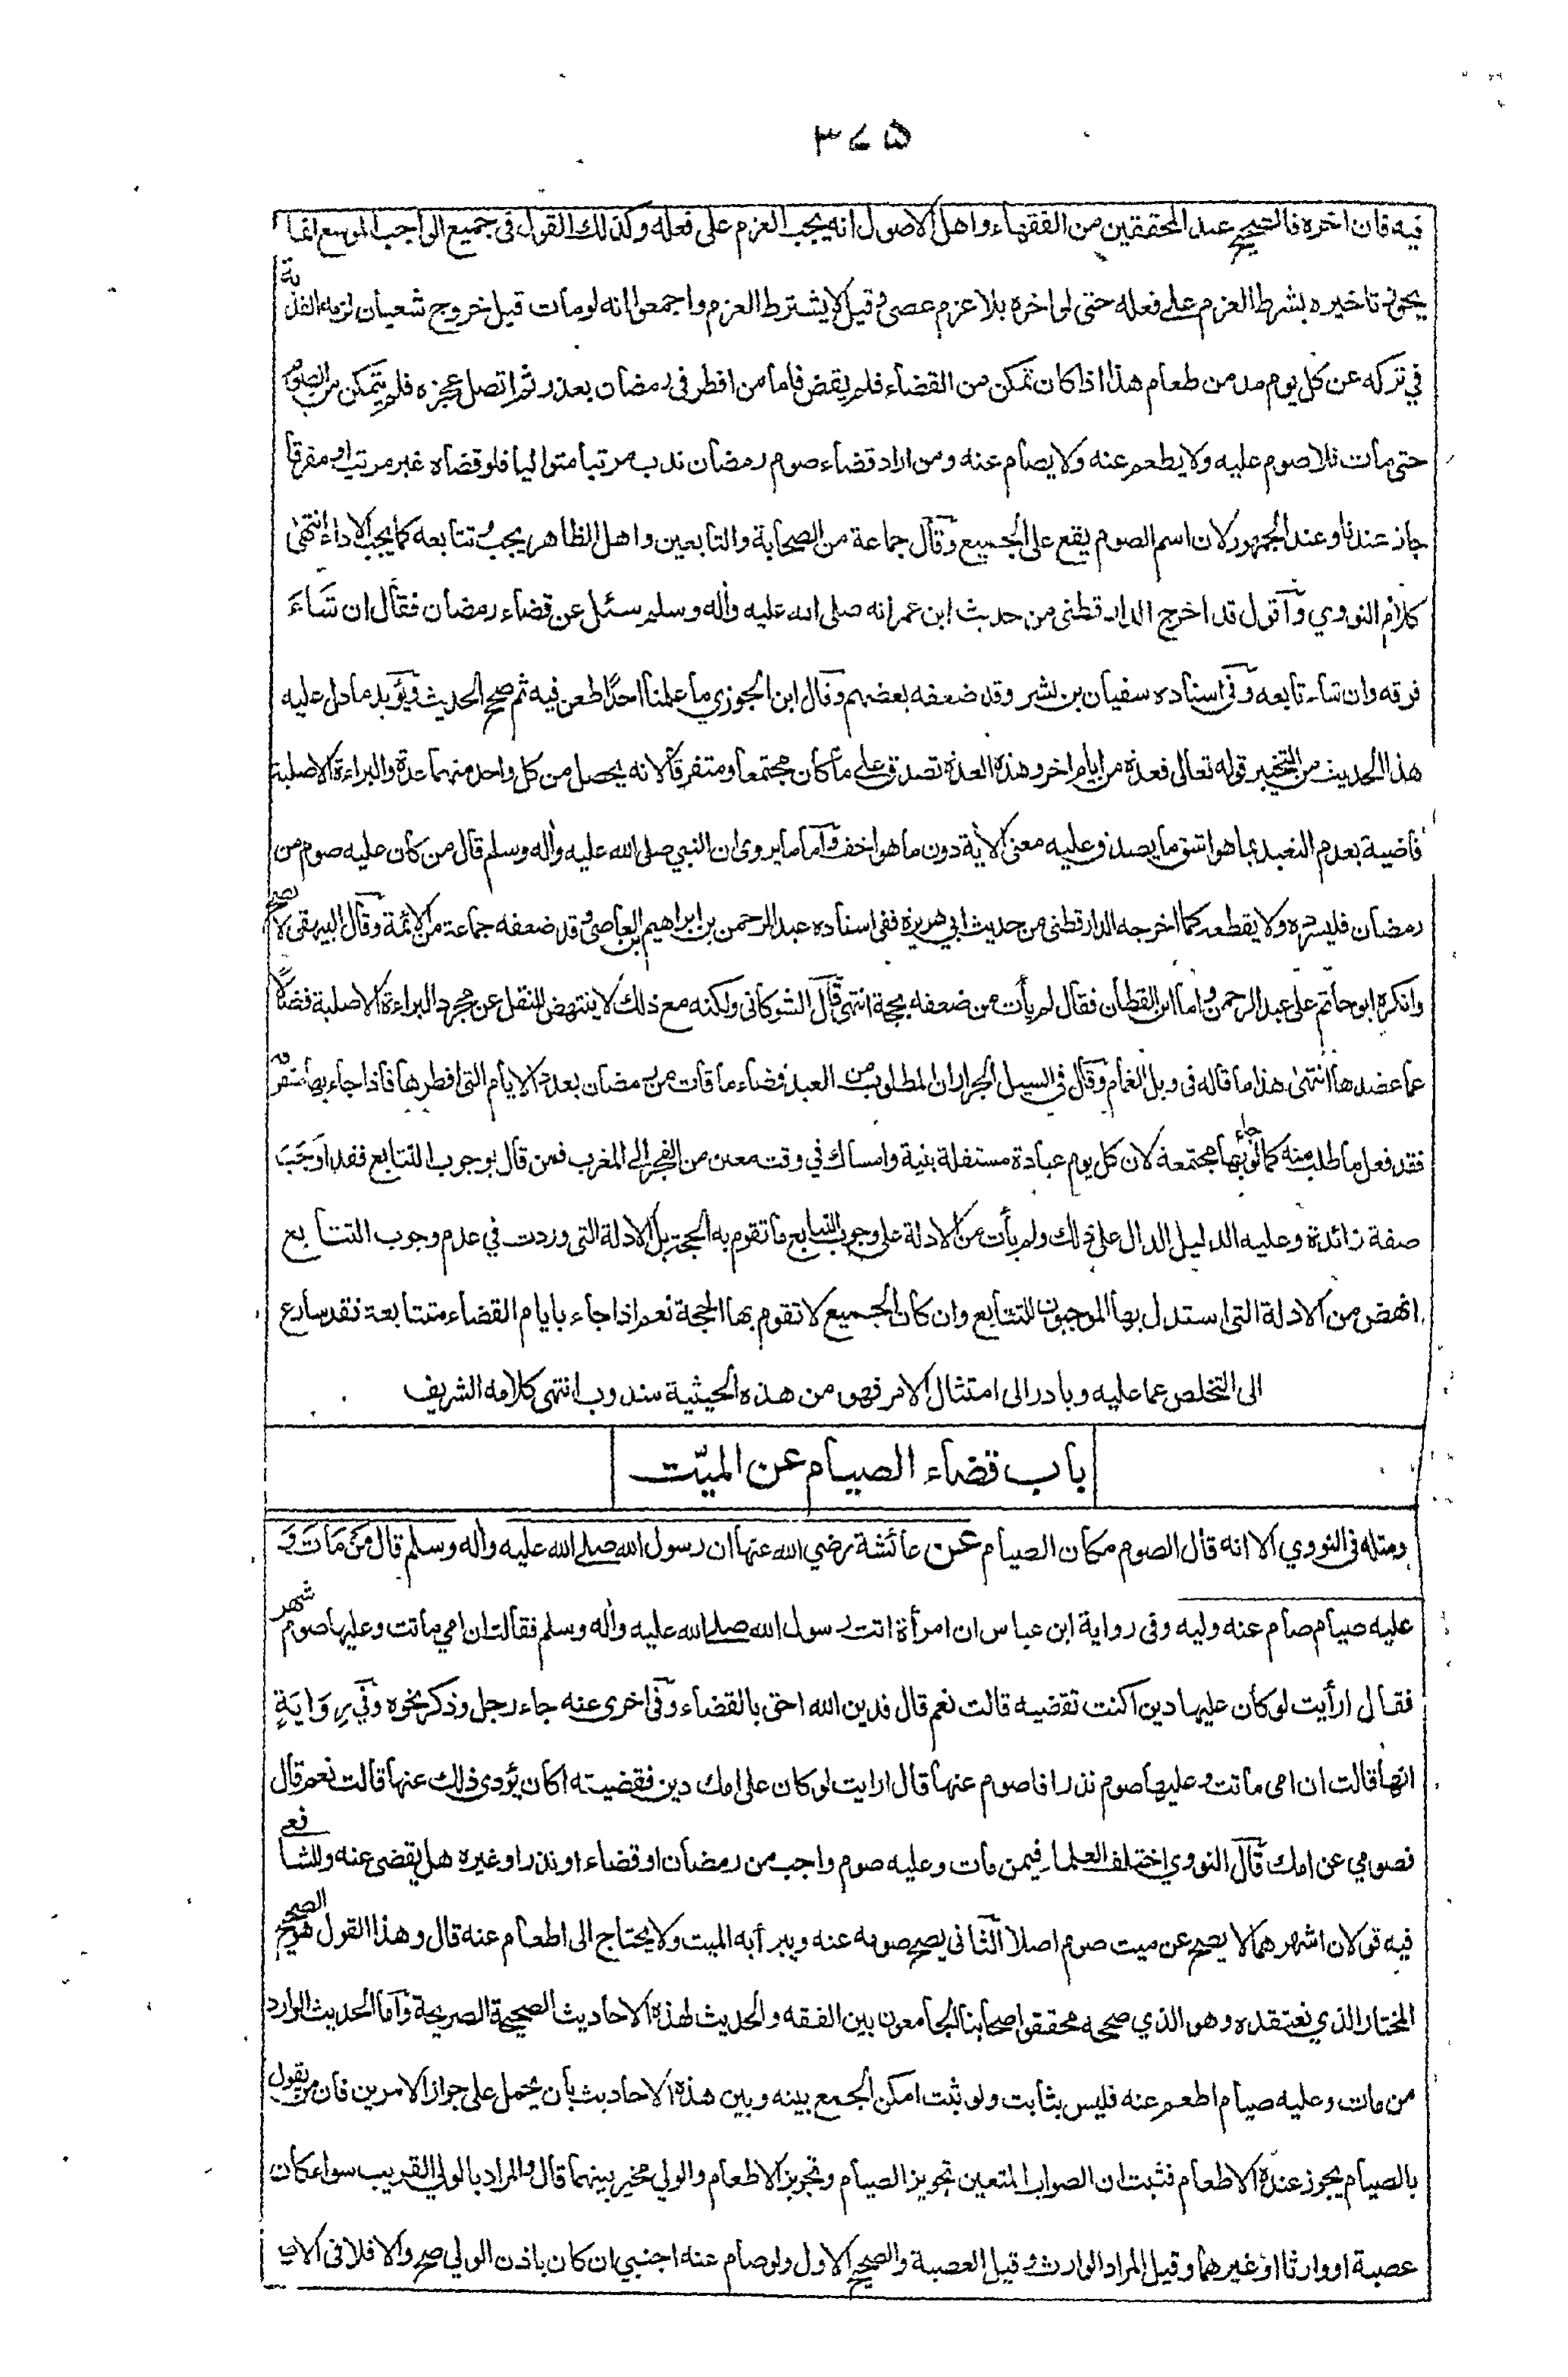 ٣٧٥
فيه فان اخره فالصحيح عند المحققين من الفقهاء واهل الاصول انه يجب العزم على فعله وكذلك القول في جميع الواجب الموسع انما
يجوز تاخيره بشرط العزم على فعله حتى لو اخره بلا عزم عصى وقيل لا يشترط العزم واجمعوا انه لو مات قبل خروج شعبان لزمه الفدية
في تركه عن كل يوم مد من طعام هذا اذا كان تمكن من القضاء فلم يقض فاما من افطر في رمضان بعذر ثم اتصل عجزه فلم يتمكن من الصوم
حتى مات فلا صوم عليه ولا يطعم عنه ولا يصام عنه ومن اراد قضاء صوم رمضان ندب مرتبا متواليا فلو قضاه غير مرتب او مفرقا
جاز عندنا وعند الجمهور لان اسم الصوم يقع على الجميع وقال جماعة من الصحابة والتابعين واهل الظاهر يجب تتابعه كما يجب الاداء انتهى
كلام النووي وأقول قد اخرج الدارقطني من حديث ابن عمر انه صلى الله عليه وأله وسلم سئل عن قضاء رمضان فقال ان شَاءَ
فرقه وان شاء تابعه وفي اسناده سفيان بن بشر وقد ضعفه بعضهم وقال ابن الجوزي ما علمنا احدًا طعن فيه ثم صحح الحديث ويؤيد ما دل عليه
هذا الحديث من التخيير قوله تعالى فعدة من ايام اخر وهذه العدة تصدق على ما كان مجتمعا ومتفرقا لانه يحصل من كل واحد منهما عدة والبراءة الاصلية
قاضية بعدم التعبد بما هو اشق ما يصدق عليه معنى الأية دون ما هو اخف وأما ما يروى ان النبي صلى الله عليه وأله وسلم قال من كان عليه صوم من
رمضان فليسرده ولا يقطعه كما اخرجه الدارقطني من حديث ابي هريرة ففي اسناده عبد الرحمن بن ابراهيم بن العاصي وقد ضعفه جماعة من الائمة وقال البيهقي لا يصح
وانكره ابو حاتم على عبد الرحمن واما ابن القطان فقال لم يأت من ضعفه بحجة انتهى قال الشوكاني ولكنه مع ذلك لا ينتهض للنقل عن مجرد البراءة الاصلية فضلا
عما عضدها انتهى هذا ما قاله في وبل الغمام وقال في السيل الجرار ان المطلوب من العبد قضاء ما فات من رمضان بعدد الايام التي افطرها فاذا جاء بها متفرقة
فقد فعل ما طلب منه كما لو جاء بها مجتمعة لان كل يوم عبادة مستقلة بنية وامساك في وقت معين من الفجر الى المغرب فمن قال بوجوب التتابع فقد اوجَبَ
صفة زائدة وعليه الدليل الدال على ذلك ولم يأت من الادلة على وجوب التتابع ما تقوم به الحجة بل الادلة التي وردت في عدم وجوب التتابع
انهض من الادلة التي استدل بها الموجبون للتتابع وان كان الجميع لا تقوم بها الحجة نعم اذا جاء بايام القضاء متتابعة فقد سارع
الى التخلص عما عليه وبادر الى امتثال الامر فهو من هذه الحيثية مندوب انتهى كلامه الشريف
باب قضاء الصيام عن الميّت
ومثله في النووي الا انه قال الصوم مكان الصيام عن عائشة رضي الله عنها ان رسول الله صلى الله عليه وأله وسلم قال مَنْ مَاتَ وَ
عليه صيام صام عنه وليه وفي رواية ابن عباس ان امرأة اتت رسول الله صلى الله عليه وأله وسلم فقالت ان امي ماتت وعليها صوم شهر
فقال ارأيت لو كان عليها دين اكنت تقضيه قالت نعم قال فدين الله احق بالقضاء وفي اخرى عنه جاء رجل وذكر نحوه وفي رِوَايَةٍ
انها قالت ان امي ماتت وعليها صوم نذر افاصوم عنها قال ارايت لو كان على امك دين فقضيته اكان يؤدى ذلك عنها قالت نعم قال
فصومي عن امك قال النووي اختلف العلماء فيمن مات وعليه صوم واجب من رمضان او قضاء او نذر او غيره هل يقضى عنه وللشافعي
فيه قولان اشهرهما لا يصح عن ميت صوم اصلا الثاني يصح صومه عنه ويبرأ به الميت ولا يحتاج الى اطعام عنه قال وهذا القول هو الصحيح
المختار الذي نعتقده وهو الذي صححه محققوا اصحابنا الجامعون بين الفقه والحديث لهذه الاحاديث الصحيحة الصريحة وأما الحديث الوارد
من مات وعليه صيام اطعم عنه فليس بثابت ولو ثبت امكن الجمع بينه وبين هذه الاحاديث بأن يحمل على جواز الامرين فان من يقول
بالصيام يجوز عنده الاطعام فثبت ان الصواب المتعين تجويز الصيام وتجويز الاطعام والولي مخير بينهما قال والمراد بالولي القريب سواء كان
عصبة او وارثا او غيرهما وقيل المراد الوارث وقيل العصبة والصحيح الاول ولو صام عنه اجنبي ان كان باذن الولي صح والا فلا في الاصح